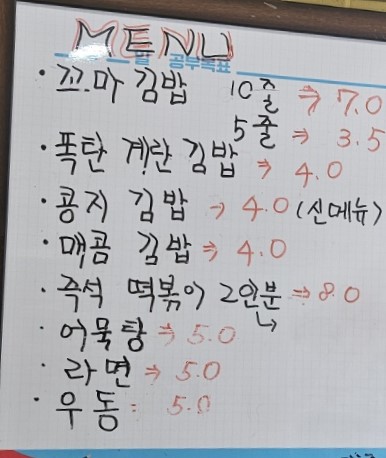 MENU
월 공부목표
• 꼬마 김밥 10줄 ⇒ 7.0
5줄 ⇒ 3.5
• 폭탄 계란 김밥 ⇒ 4.0
• 콩지 김밥 → 4.0 (신메뉴)
• 매콤 김밥 ⇒ 4.0
• 즉석 떡볶이 2인분 ⇒ 8.0
• 어묵탕 ⇒ 5.0
• 라면 ⇒ 5.0
• 우동 : 5.0